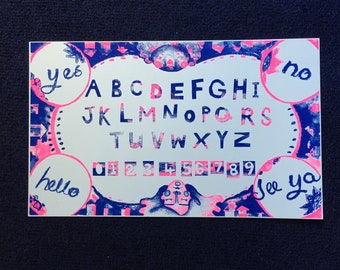 yes
no
A B C D E F G H I
J K L M N O P Q R S
T U V W X Y Z
0 1 2 3 4 5 6 7 8 9
hello
See ya